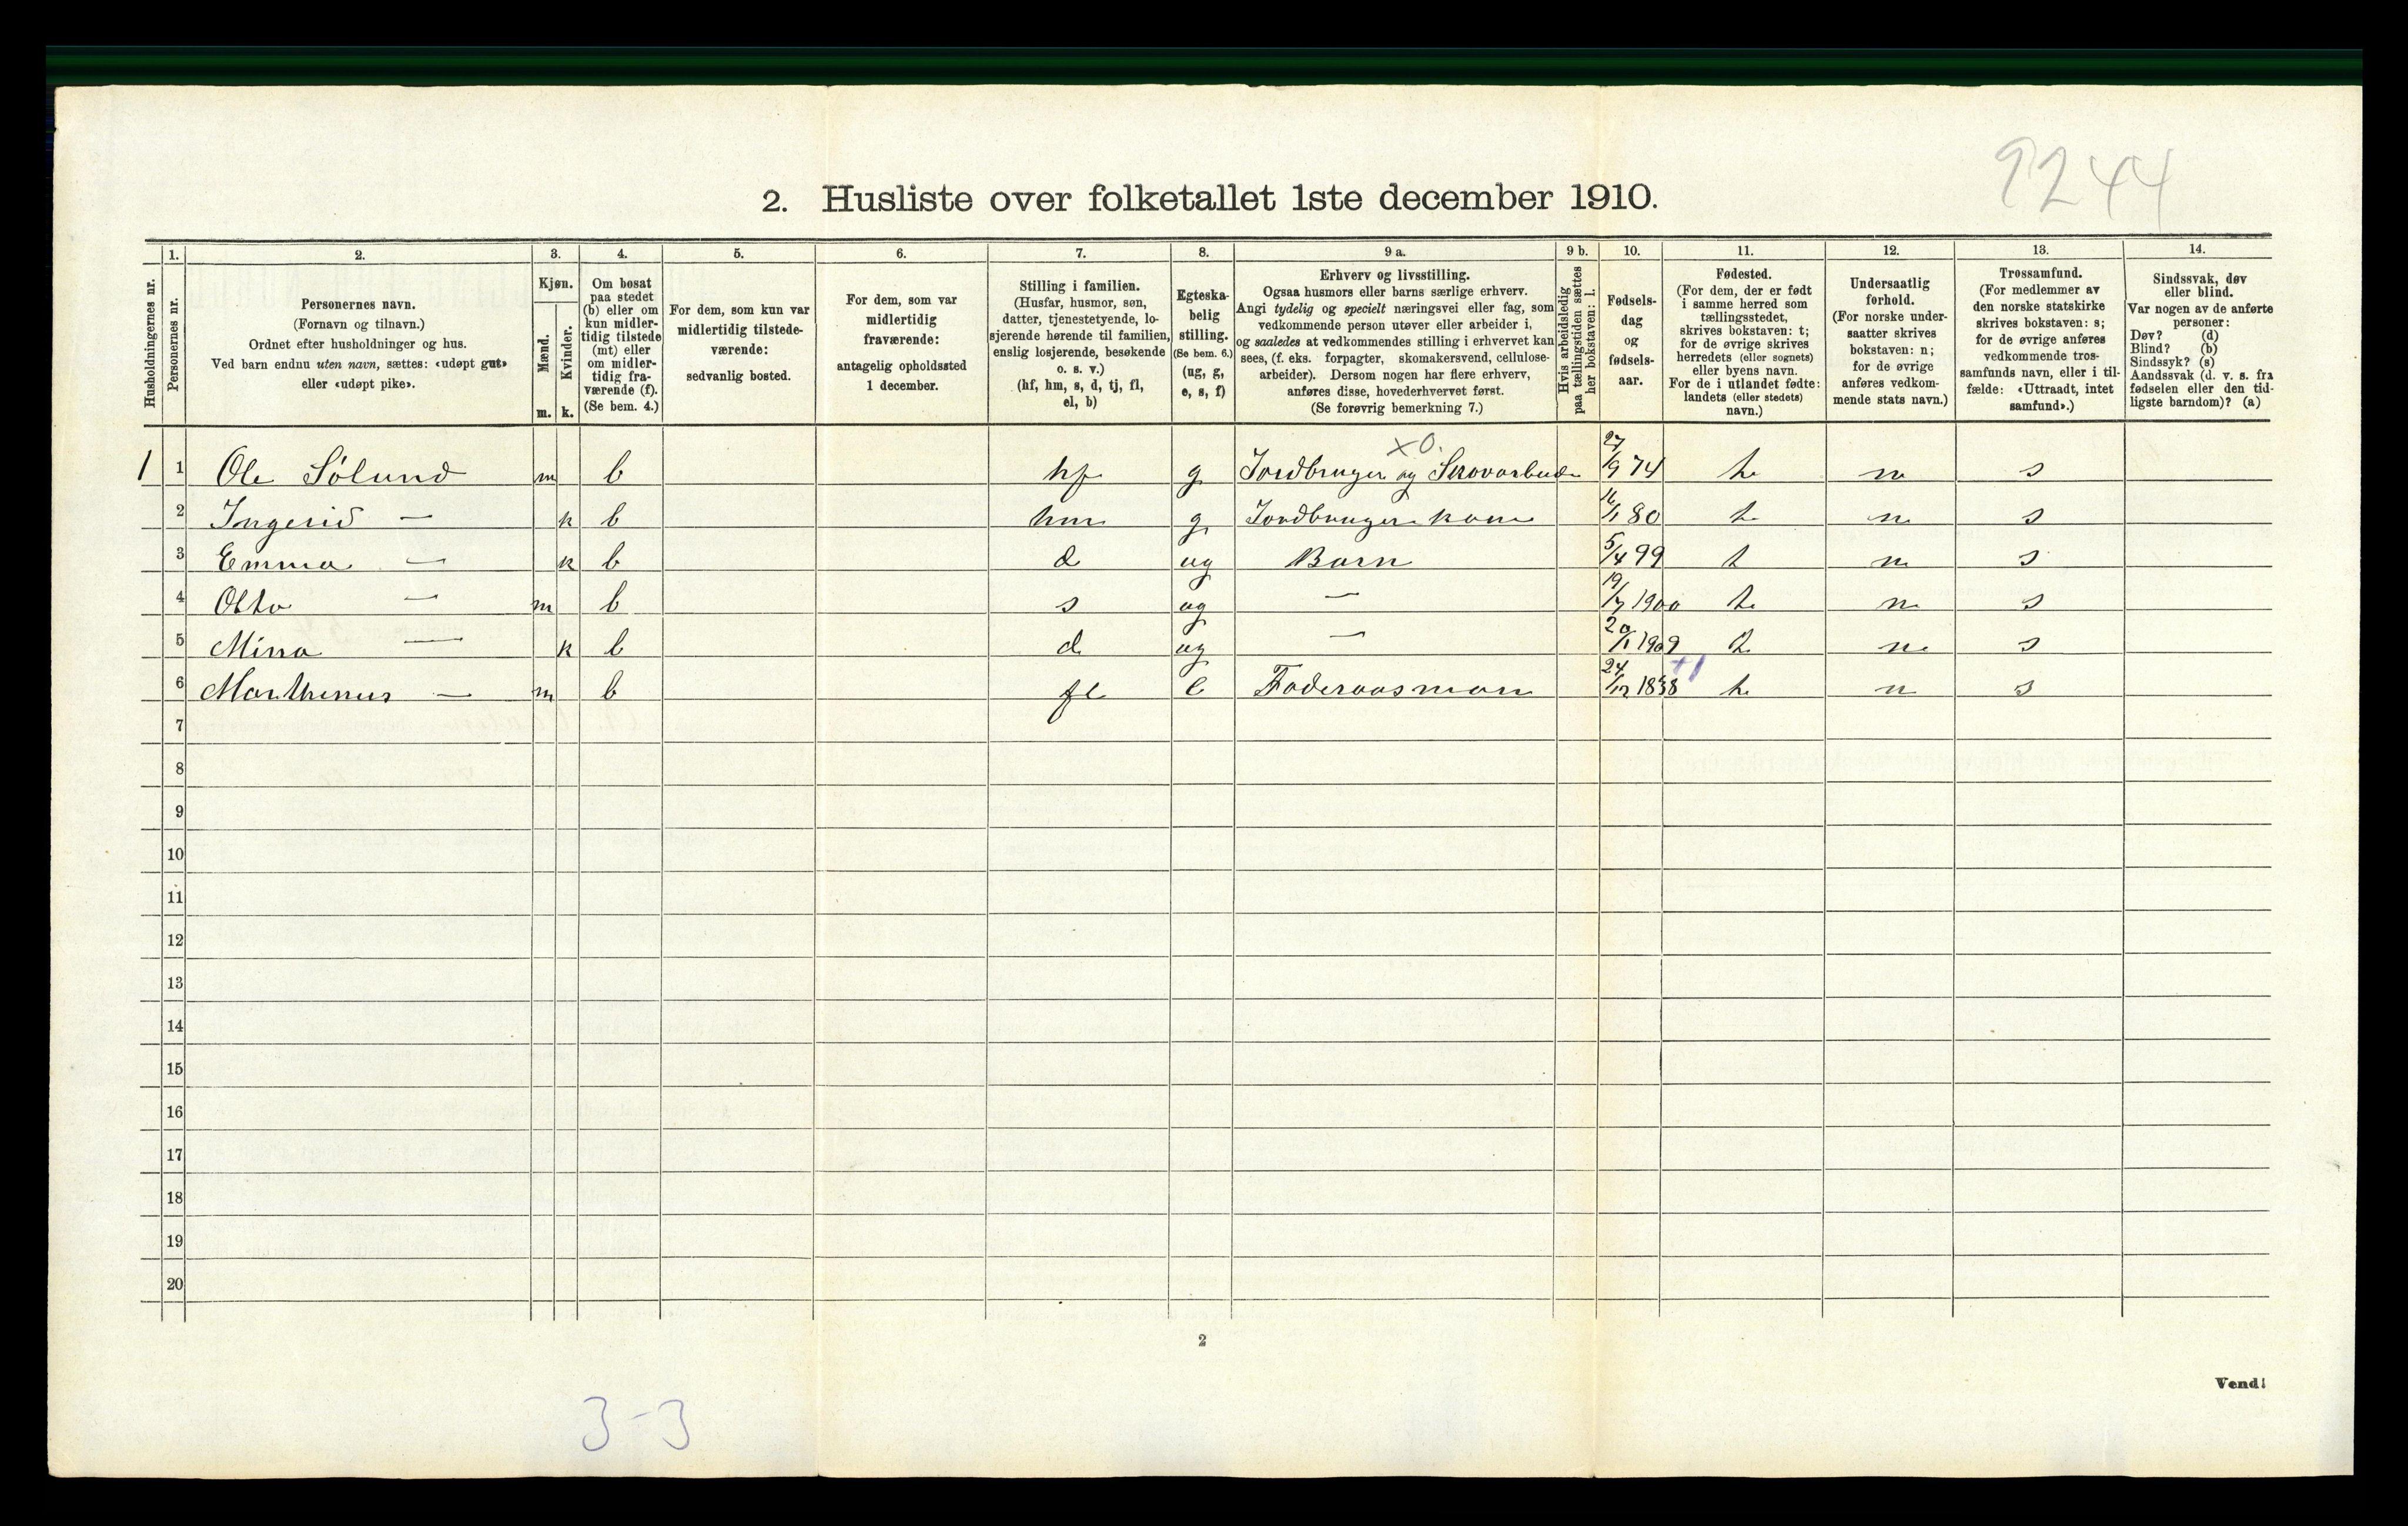 9244
2. Husliste over folketallet 1ste december 1910.
Husholdningernes nr.
1. Personernes nr.
2. Personernes navn.
(Fornavn og tilnavn.)
Ordnet efter husholdninger og hus.
Ved barn endnu uten navn, sættes: «udøpt gut»
eller «udøpt pike».
3. Kjøn.
Mænd. m.
Kvinder. k.
4. Om bosat
paa stedet
(b) eller om
kun midler-
tidig tilstede
(mt) eller
om midler-
tidig fra-
værende (f).
(Se bem. 4.)
5. For dem, som kun var
midlertidig tilstede-
værende:
sedvanlig bosted.
6. For dem, som var
midlertidig
fraværende:
antagelig opholdssted
1 december.
7. Stilling i familien.
(Husfar, husmor, søn,
datter, tjenestetyende, lo-
sjerende hørende til familien,
enslig losjerende, besøkende
o. s. v.)
(hf, hm, s, d, tj, fl,
el, b)
8. Egteska-
belig
stilling.
(Se bem. 6.)
(ug, g,
e, s, f)
9 a. Erhverv og livsstilling.
Ogsaa husmors eller barns særlige erhverv.
Angi tydelig og specielt næringsvei eller fag, som
vedkommende person utøver eller arbeider i,
og saaledes at vedkommendes stilling i erhvervet kan
sees, (f. eks. forpagter, skomakersvend, cellulose-
arbeider). Dersom nogen har flere erhverv,
anføres disse, hovederhvervet først.
(Se forøvrig bemerkning 7.)
9 b. Hvis arbeidsledig
paa tællingstiden sættes
her bokstaven: l.
10. Fødsels-
dag
og
fødsels-
aar.
11. Fødested.
(For dem, der er født
i samme herred som
tællingsstedet,
skrives bokstaven: t;
for de øvrige skrives
herredets (eller sognets)
eller byens navn.
For de i utlandet fødte:
landets (eller stedets)
navn.)
12. Undersaatlig
forhold.
(For norske under-
saatter skrives
bokstaven: n;
for de øvrige
anføres vedkom-
mende stats navn.)
13. Trossamfund.
(For medlemmer av
den norske statskirke
skrives bokstaven: s;
for de øvrige anføres
vedkommende tros-
samfunds navn, eller i til-
fælde: «Uttraadt, intet
samfund».)
14. Sindssvak, døv
eller blind.
Var nogen av de anførte
personer:
Døv? (d)
Blind? (b)
Sindssyk? (s)
Aandssvak (d. v. s. fra
fødselen eller den tid-
ligste barndom)? (a)
X O.
1 1 Ole Sølund m b hf g Jordbruger og Skovarbeide 27/9 74 t n s
2 Ingerid — k b hm g Jordbruger kone /1 80 t n s
3 Emma — k b d ug Barn 5/4 99 t n s
4 Otto — m b s ug — 19/7 1900 t n s
5 Mina — k b d ug — 20/1 1909 t n s
+1
6 Marthinus — m b fl e Føderaasman 24/12 1838 t n s
7
8
9
10
11
12
13
14
15
16
17
18
19
20
2
Vend!
3-3